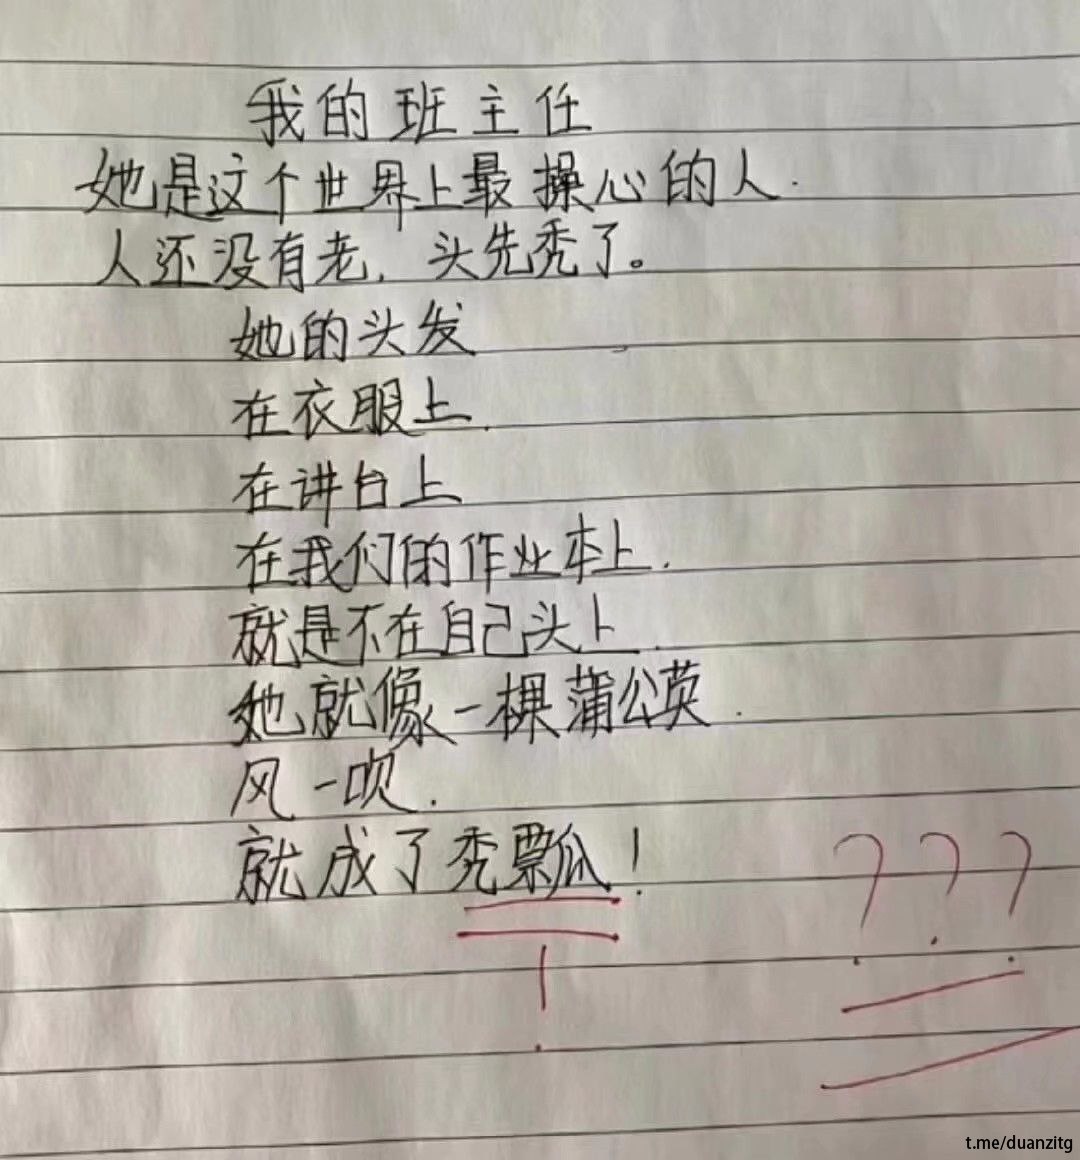 我的班主任
她是这个世界上最操心的人.
人还没有老,头先秃了。
她的头发
在衣服上.
在讲台上
在我们的作业本上.
就是不在自己头上.
她就像一棵蒲公英.
风一吹.
就成了秃瓢!
???
!
t.me/duanzitg